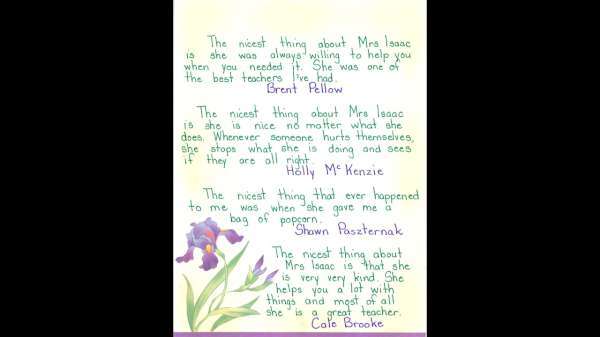 The nicest thing about Mrs Isaac
is she was always willing to help you
when you needed it. She was one of
the best teachers I've had.
Brent Pellow
The nicest thing about Mrs Isaac
is she is nice no matter what she
does. Whenever someone hurts themselves,
she stops what she is doing and sees
if they are all right.
Holly McKenzie
The nicest thing that ever happened
to me was when she gave me a
bag of popcorn.
Shawn Paszternak
The nicest thing about
Mrs Isaac is that she
is very very kind. She
helps you a lot with
things and most of all
she is a great teacher.
Cale Brooke